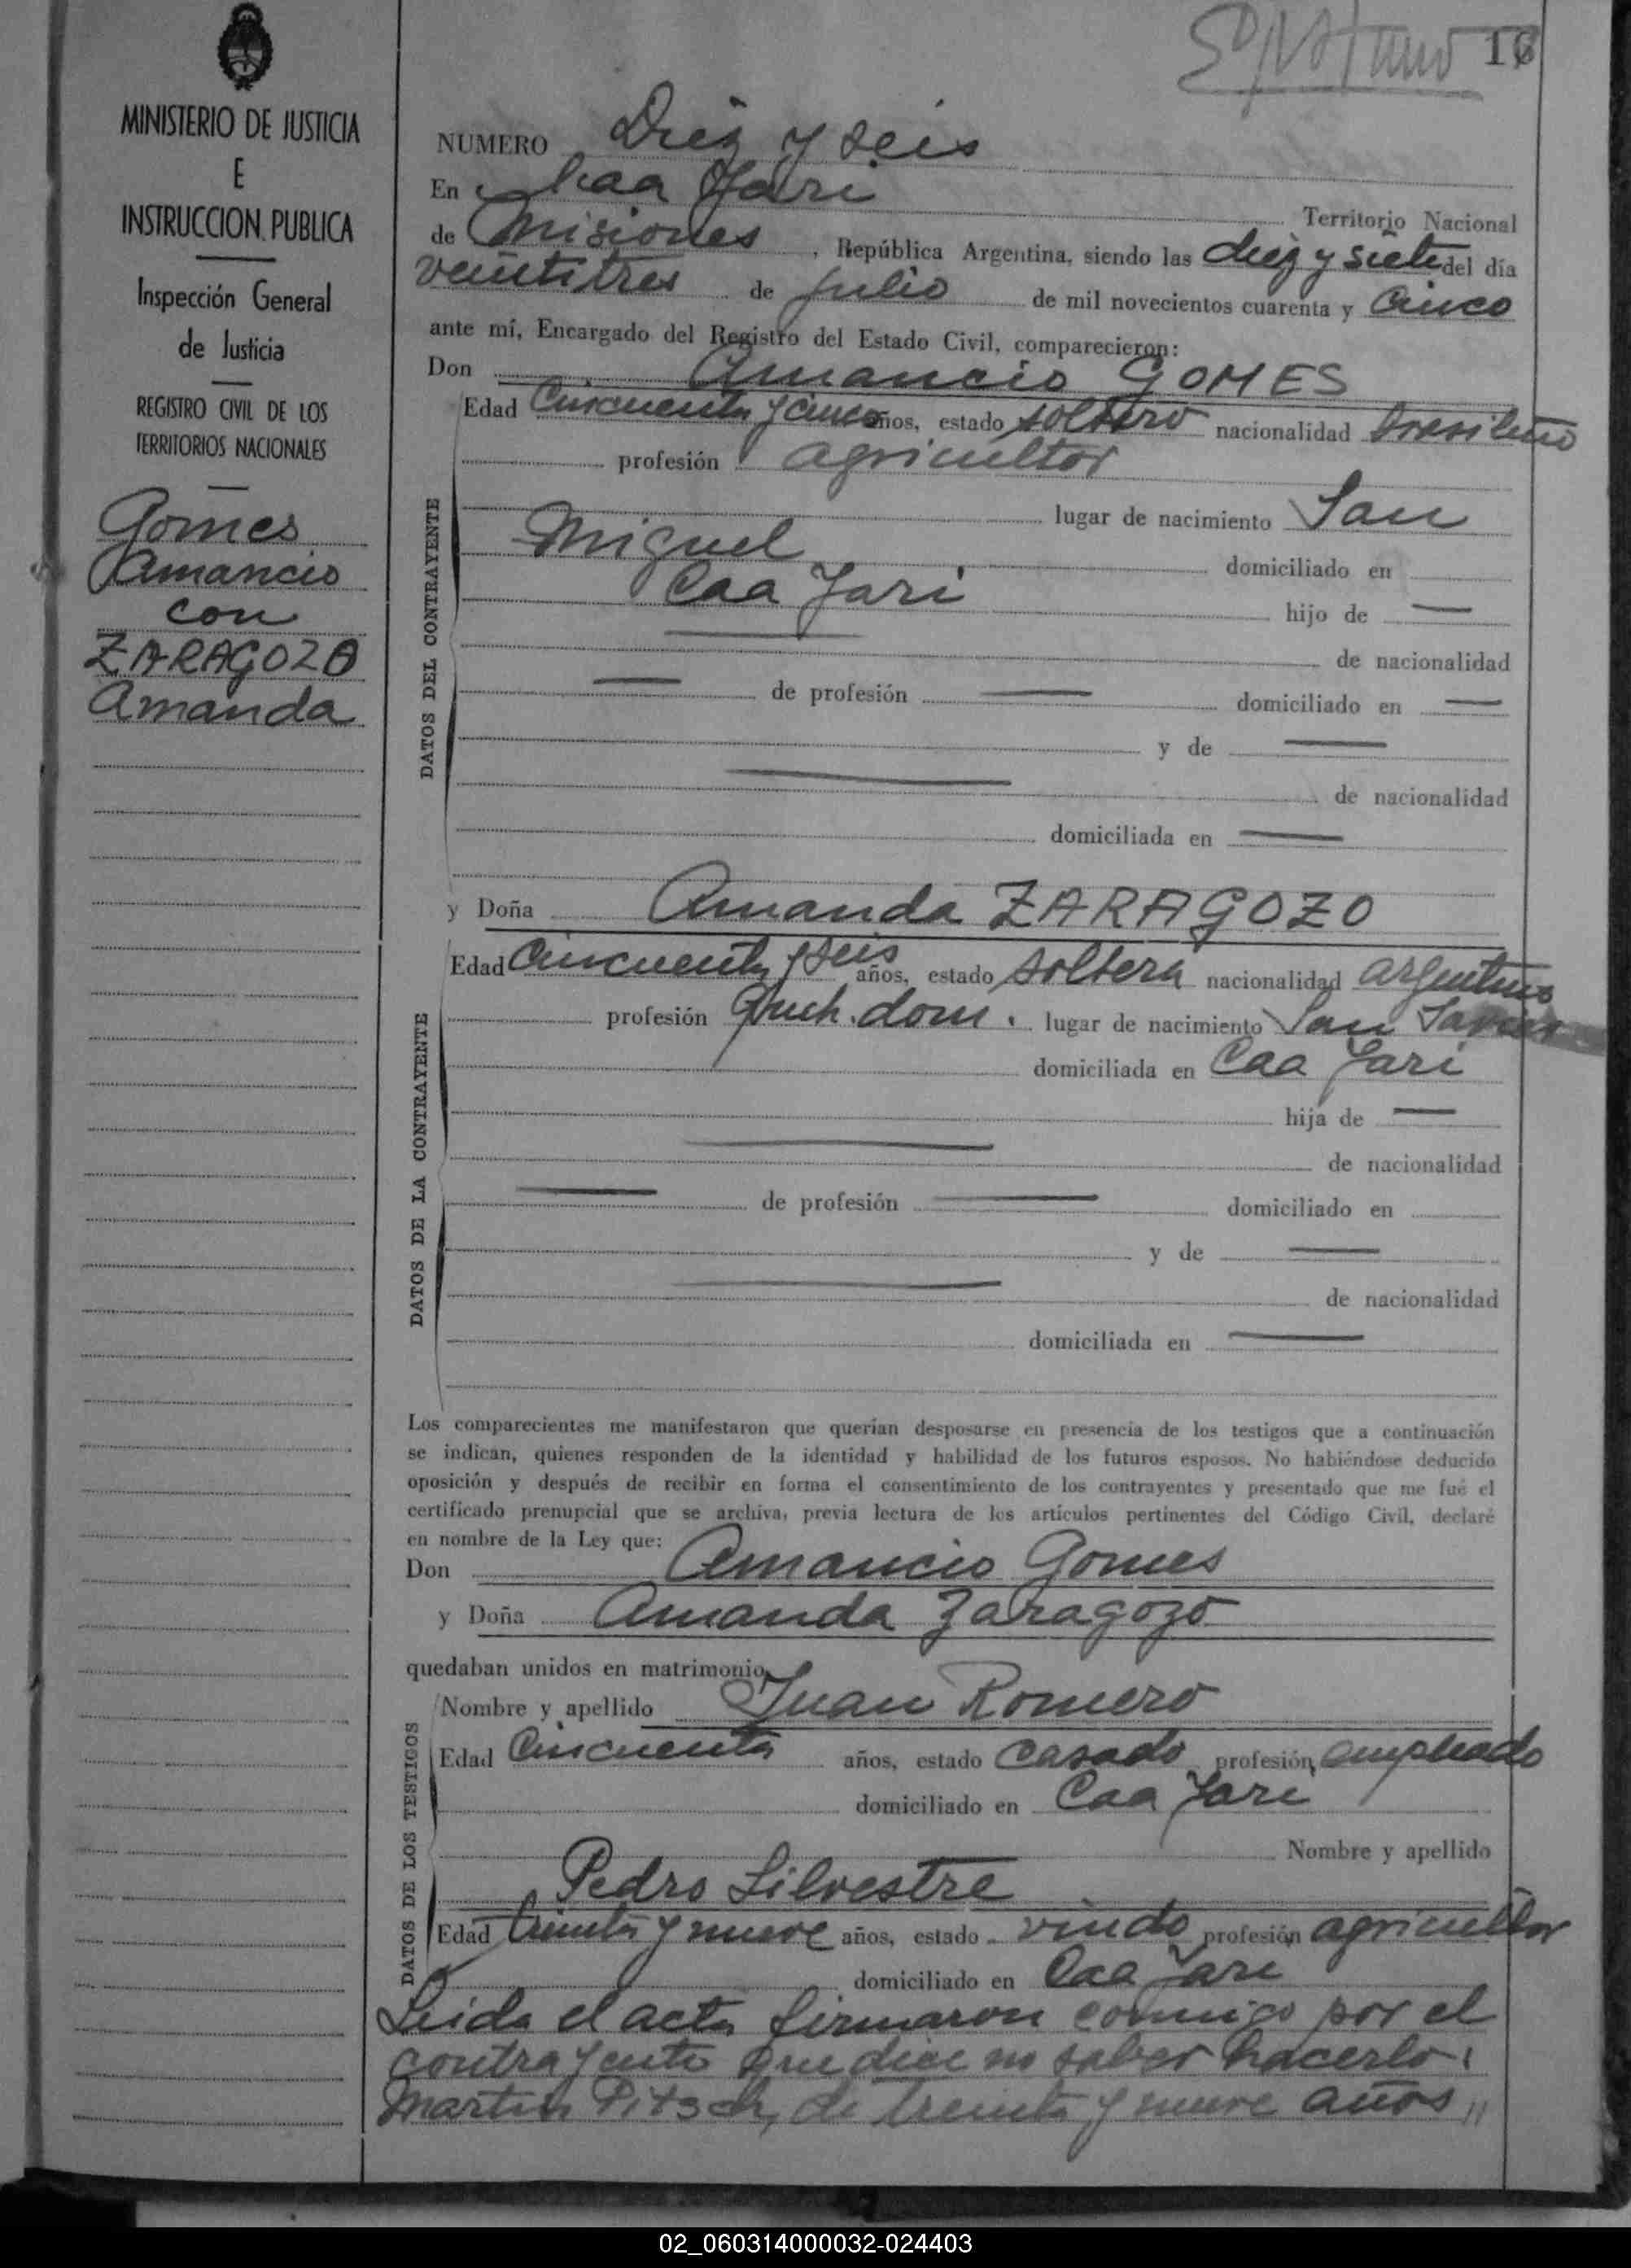 16
MINISTERIO DE JUSTICIA
E
INSTRUCCION PUBLICA
Inspección General
de Justicia
REGISTRO CIVIL DE LOS
TERRITORIOS NACIONALES
Gomes
Amancio
con
ZARAGOZO
Amanda
NUMERO Diez y seis
En Caa Yari Territorio Nacional
de Misiones, República Argentina, siendo las diez y siete del día
veintitres de julio de mil novecientos cuarenta y cinco
ante mí, Encargado del Registro del Estado Civil, comparecieron:
Don Amancio GOMES
DATOS DEL CONTRAYENTE
Edad Cincuenta y cinco años, estado soltero nacionalidad brasileño
profesión agricultor
lugar de nacimiento San
Miguel domiciliado en
Caa Yari hijo de —
— de nacionalidad
— de profesión — domiciliado en —
y de —
— de nacionalidad
domiciliada en —
y Doña Amanda ZARAGOZO
DATOS DE LA CONTRAYENTE
Edad Cincuenta y seis años, estado soltera nacionalidad argentina
profesión Queh. dom. lugar de nacimiento San Javier
domiciliada en Caa Yari
hija de —
— de nacionalidad
— de profesión — domiciliado en
y de —
— de nacionalidad
domiciliada en —
Los comparecientes me manifestaron que querían desposarse en presencia de los testigos que a continuación
se indican, quienes responden de la identidad y habilidad de los futuros esposos. No habiéndose deducido
oposición y después de recibir en forma el consentimiento de los contrayentes y presentado que me fué el
certificado prenupcial que se archiva, previa lectura de los artículos pertinentes del Código Civil, declaré
en nombre de la Ley que:
Don Amancio Gomes
y Doña Amanda Zaragozo
quedaban unidos en matrimonio,
DATOS DE LOS TESTIGOS
Nombre y apellido Juan Romero
Edad Cincuenta años, estado casado profesión empleado
domiciliado en Caa Yari
Nombre y apellido
Pedro Silvestre
Edad treinta y nueve años, estado viudo profesión agricultor
domiciliado en Caa Yari
Leida el acta firmaron conmigo por el
contrayente que dice no saber hacerlo:
Martin Pitsch, de treinta y nueve años //
02_060314000032-024403